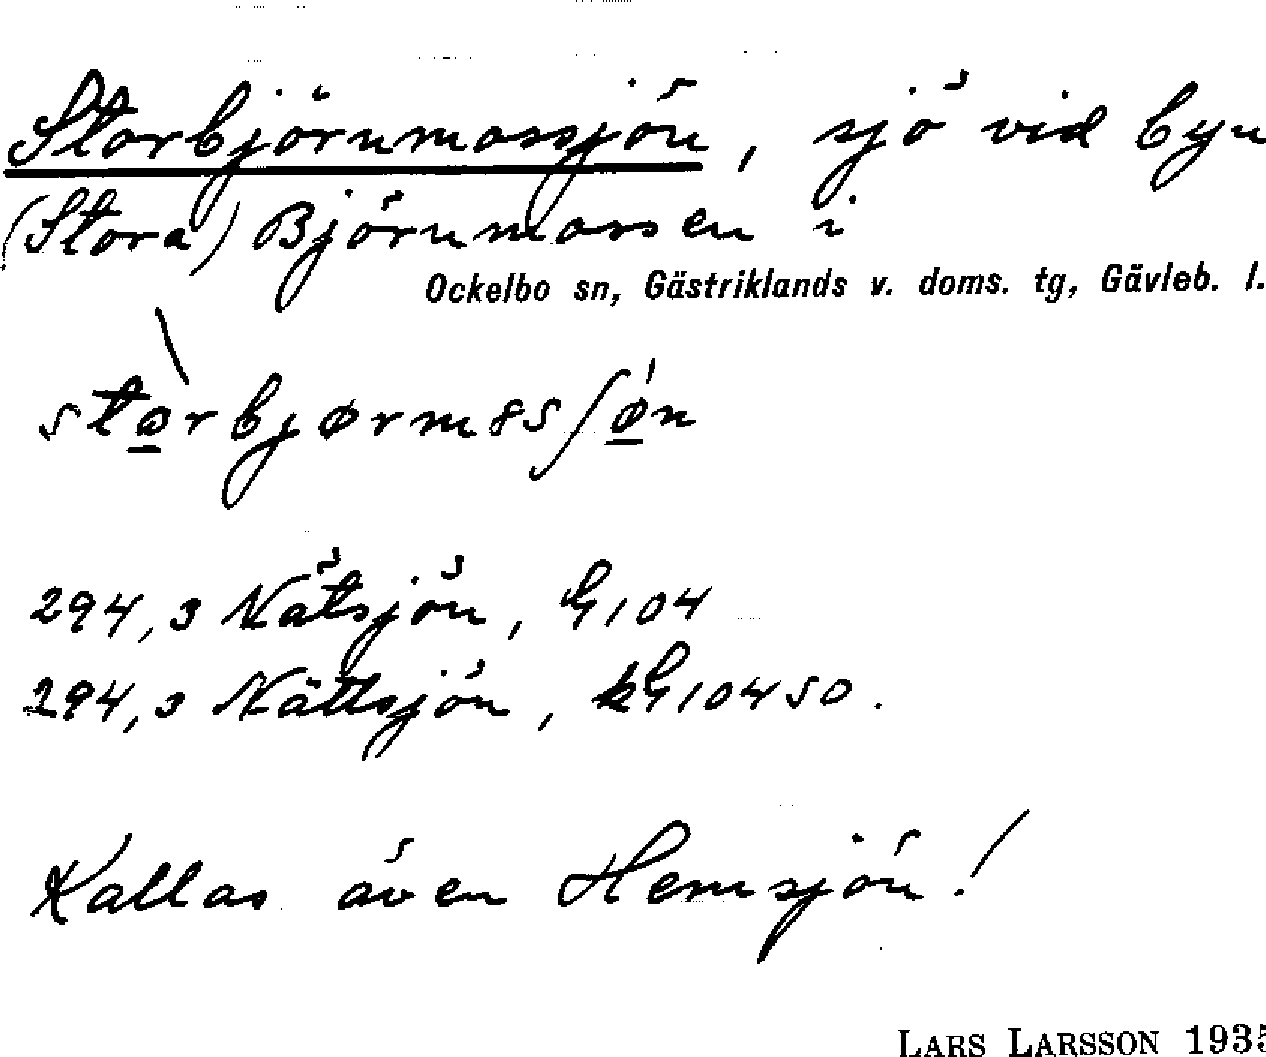 Storbjörnmossjön, sjö vid byn
(Stora) Björnmossen i
Ockelbo sn, Gästriklands v. doms. tg, Gävleb. l.
294,3 Nätsjön, G104
294,3 Nättsjön, kG10450.
Kallas även Hemsjön!
LARS LARSSON 1935